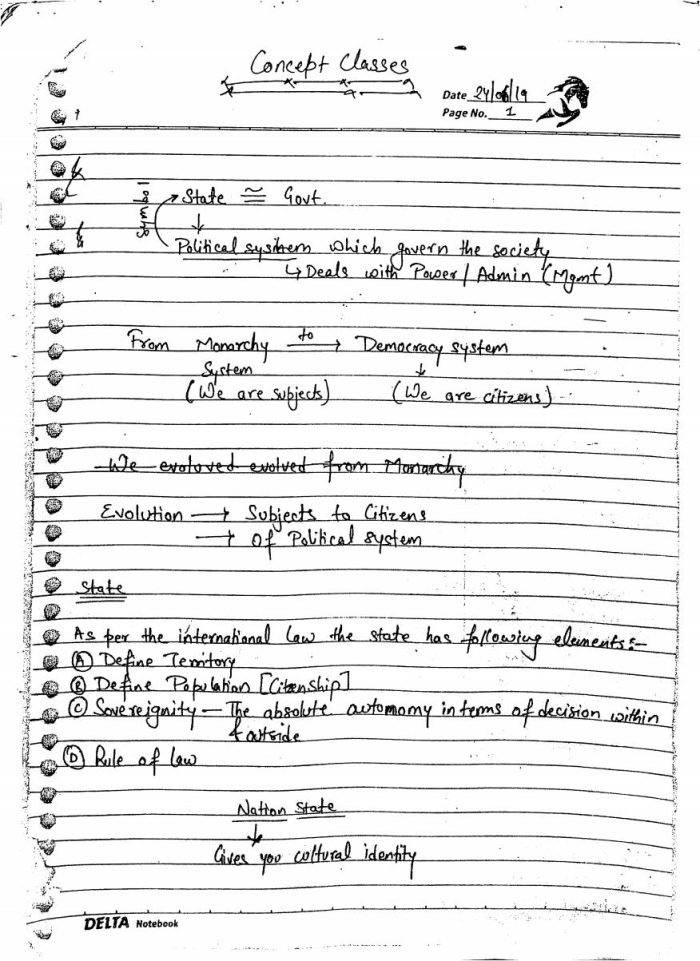 Concept Classes
Date 24/06/19
Page No. 1
State ≅ Govt.
↓
Political sysitem which govern the society
↳ Deals with Power/Admin (Mgmt)
From Monarchy to → Democracy system
System ↓
(We are subjects) (We are citizens)
We evoloved evolved from Monarchy
Evolution → Subjects to Citizens
→ Of Political System
State
As per the international law the state has following elements:-
(A) Define Territory
(B) Define Population [Citizenship]
(C) Sovereignity — The absolute automomy in terms of decision within
& outside
(D) Rule of law
Nation State
↓
Gives you cultural identity
DELTA Notebook